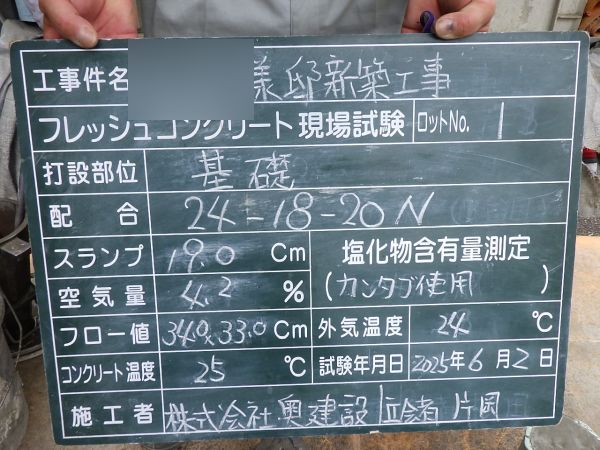 工事件名 様邸新築工事
フレッシュコンクリート現場試験 ロットNo. 1
打設部位 基礎
配合 24-18-20N
スランプ 19.0 Cm 塩化物含有量測定
空気量 4.2 % (カンタブ使用)
フロー値 34.0x33.0 Cm 外気温度 24 ℃
コンクリート温度 25 ℃ 試験年月日 2025年6月2日
施工者 株式会社奥建設 立会者 片岡